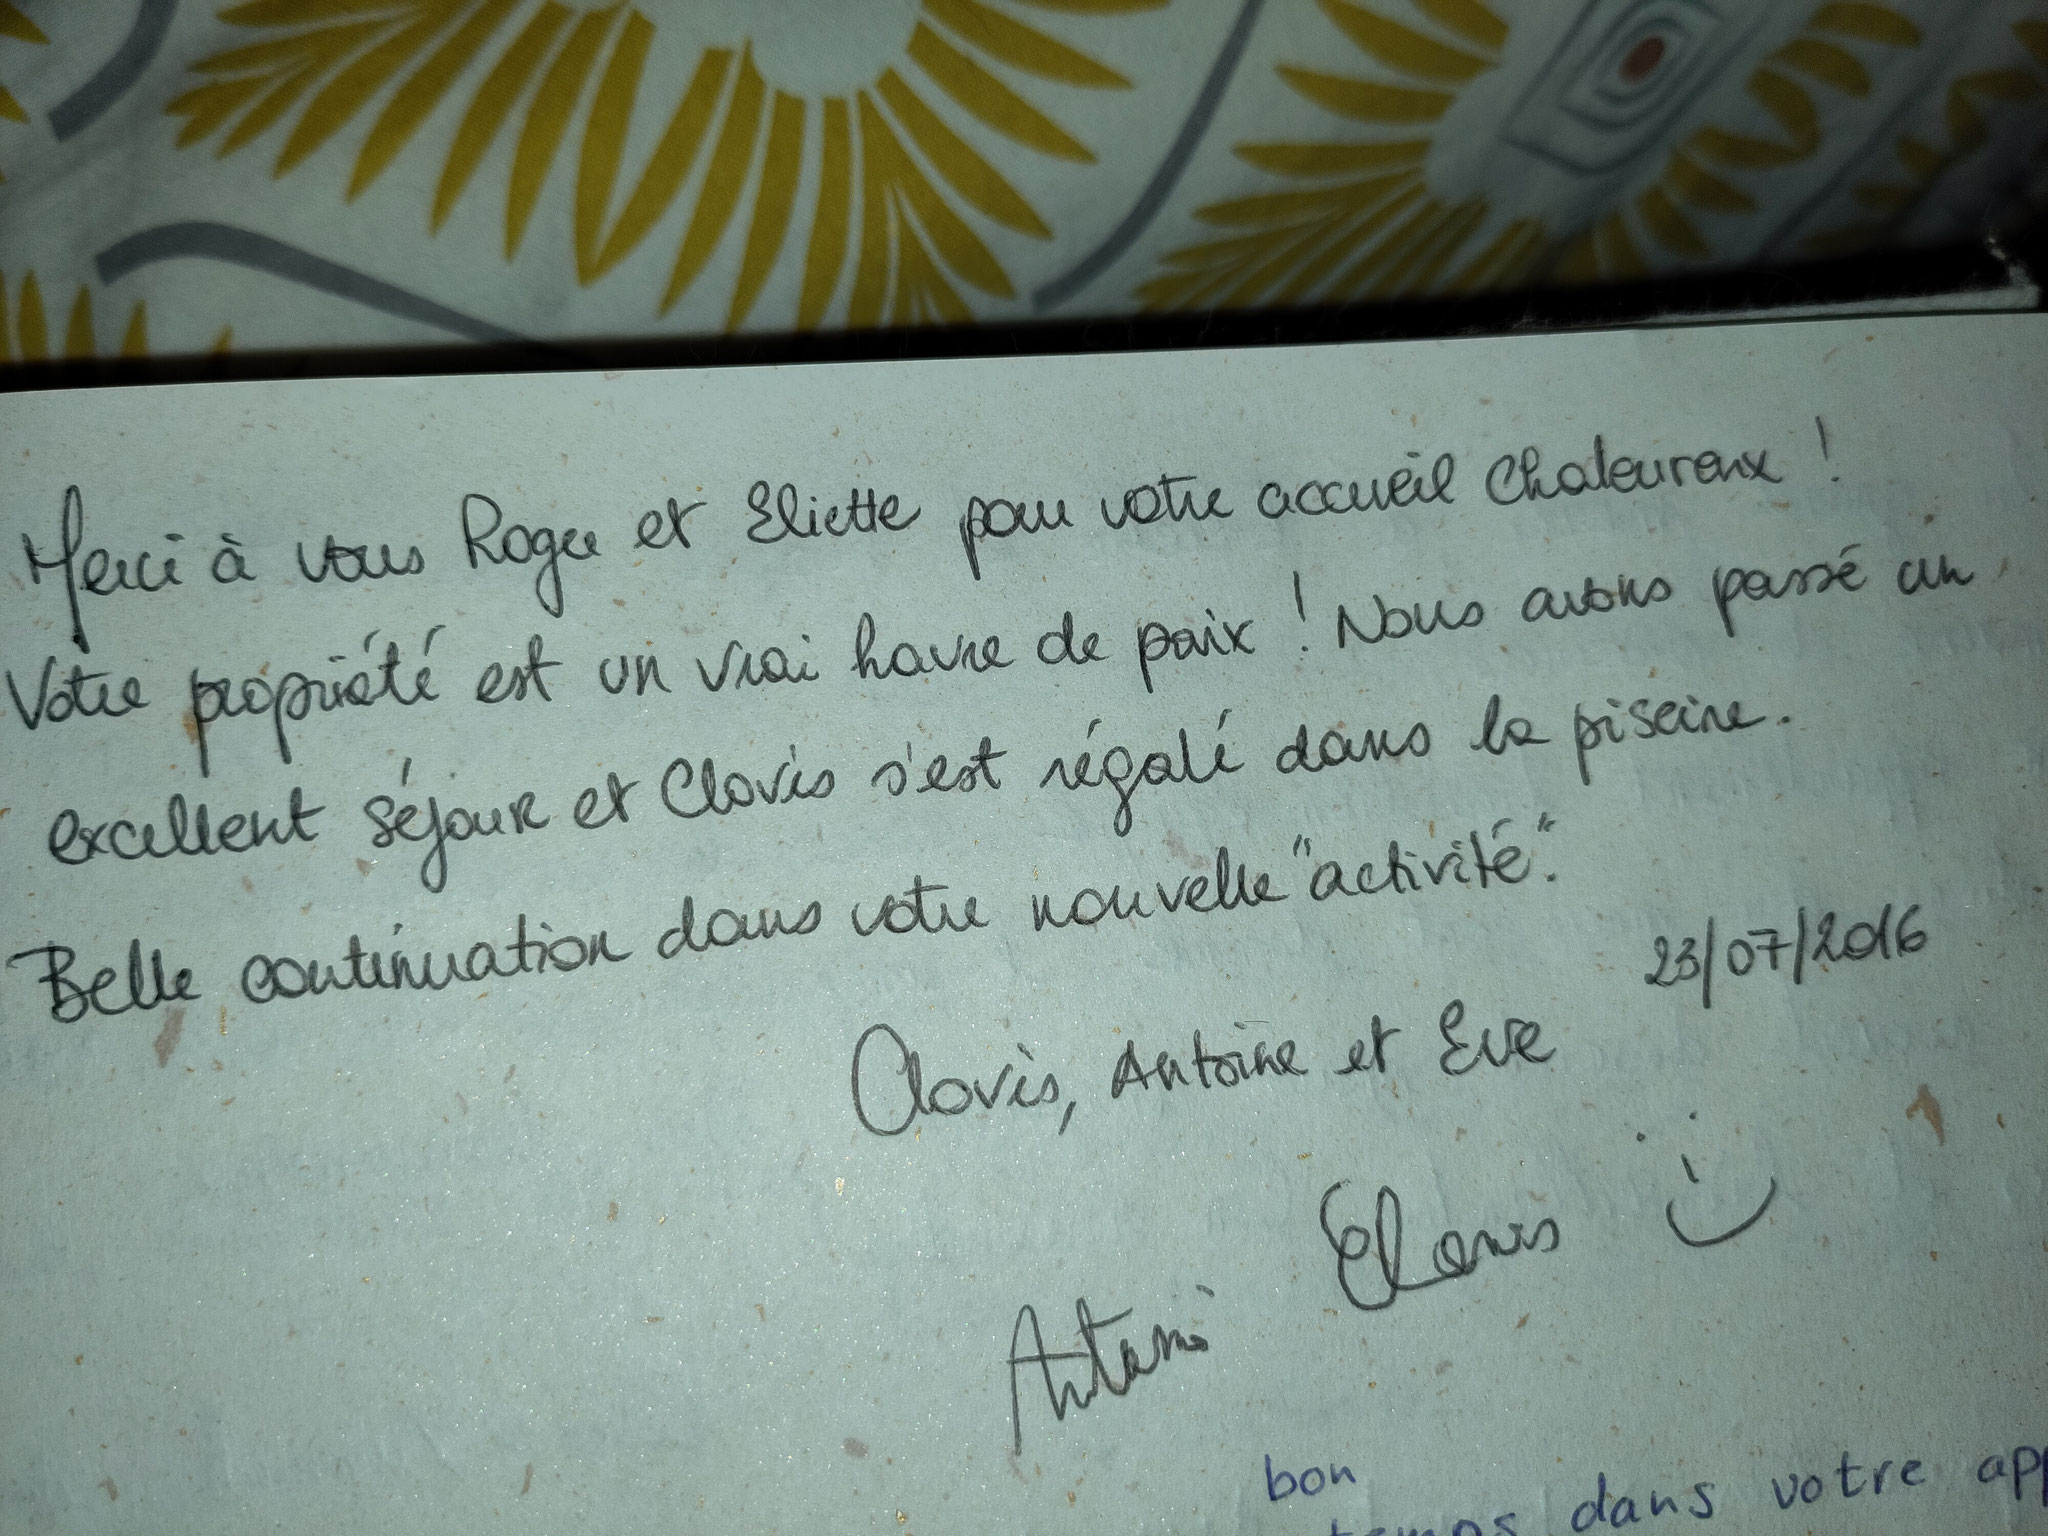 Merci à vous Roger et Eliette pour votre accueil chaleureux !
Votre propriété est un vrai havre de paix ! Nous avons passé un
excellent séjour et Clovis s'est régalé dans la piscine.
Belle continuation dans votre nouvelle "activité".
23/07/2016
Clovis, Antoine et Eve
Clovis
Antoine
bon
temps dans votre app